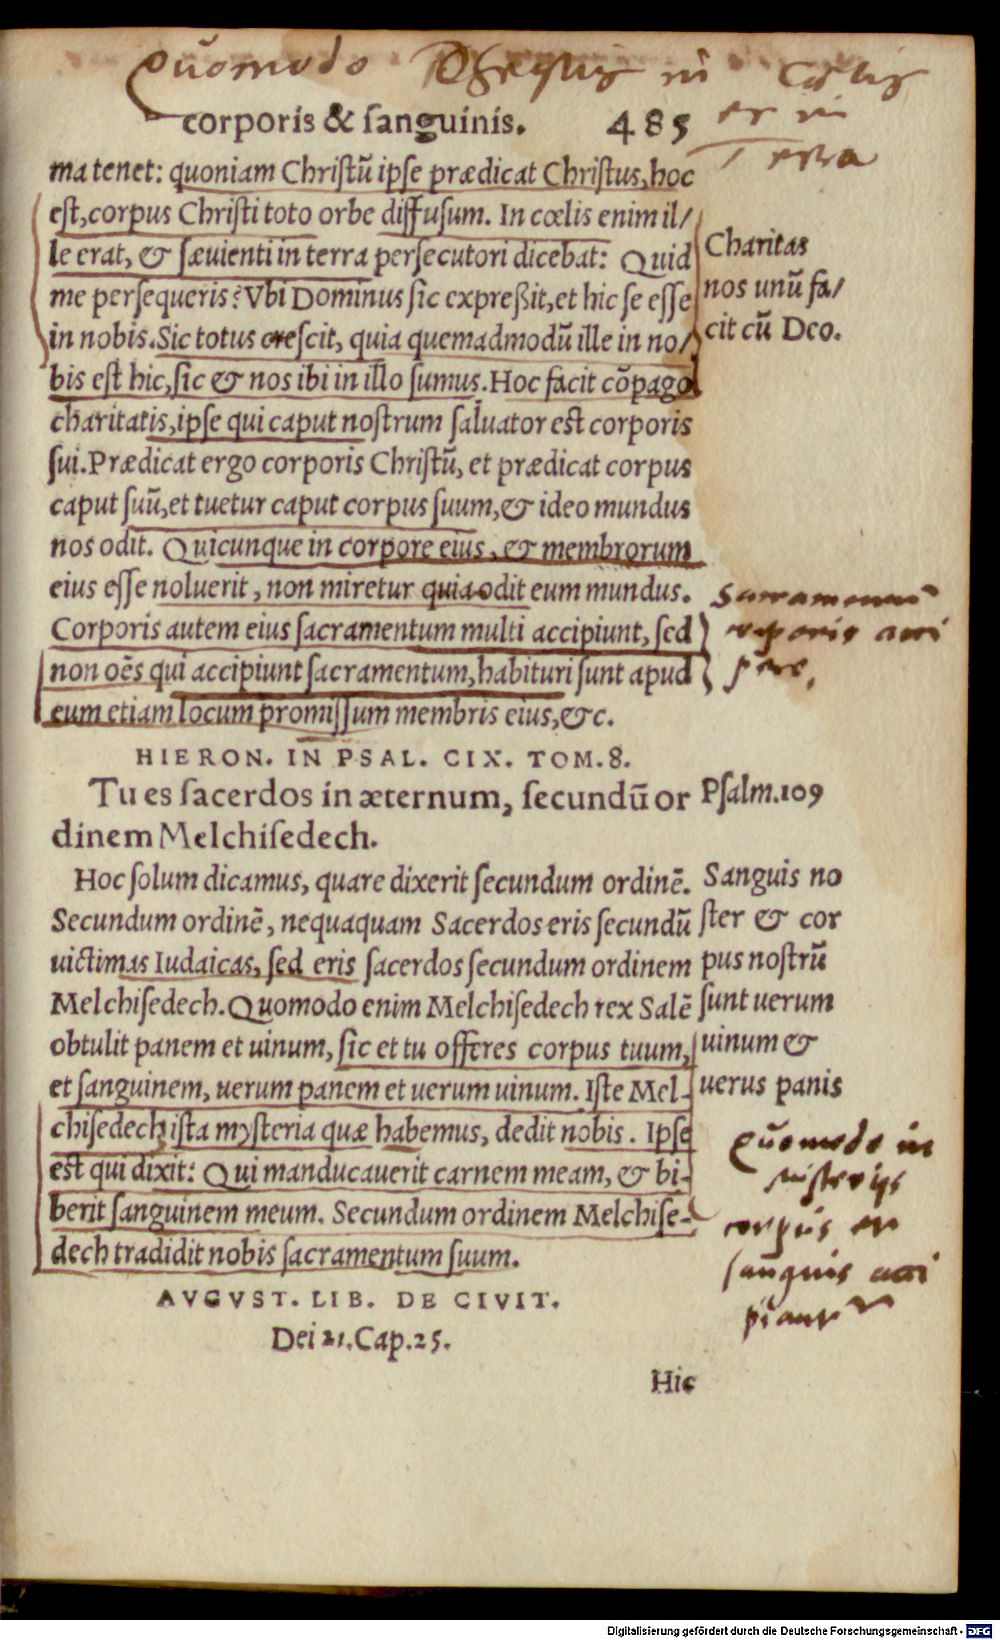 Quomodo Christus in Cœlis
et in
Terra
corporis & ſanguinis. 485
ma tenet: quoniam Chriſtũ ipſe prædicat Chriſtus, hoc
eſt, corpus Chriſti toto orbe diffuſum. In cœlis enim il/
le erat, & ſæuienti in terra perſecutori dicebat: Quid
me perſequeris? Vbi Dominus ſic expreßit, et hic ſe eſſe
in nobis. Sic totus creſcit, quia quemadmodũ ille in no/
bis eſt hic, ſic & nos ibi in illo ſumus. Hoc facit cõpago
charitatis, ipſe qui caput noſtrum ſaluator eſt corporis
ſui. Prædicat ergo corporis Chriſtũ, et prædicat corpus
caput ſuũ, et tuetur caput corpus ſuum, & ideo mundus
nos odit. Quicunque in corpore eius, & membrorum
eius eſſe noluerit, non miretur quia odit eum mundus.
Corporis autem eius ſacramentum multi accipiunt, ſed
non oẽs qui accipiunt ſacramentum, habituri ſunt apud
eum etiam locum promiſſum membris eius, &c.
Charitas
nos unũ fa/
cit cũ Deo.
Sacramentum
corporis acci
pere.
HIERON. IN PSAL. CIX. TOM. 8.
Tu es ſacerdos in æternum, ſecundũ or
dinem Melchiſedech.
Psalm.109
Hoc ſolum dicamus, quare dixerit ſecundum ordinẽ.
Secundum ordinẽ, nequaquam Sacerdos eris ſecundũ
uictimas Iudaicas, ſed eris ſacerdos ſecundum ordinem
Melchiſedech. Quomodo enim Melchiſedech rex Salẽ
obtulit panem et uinum, ſic et tu offeres corpus tuum,
et ſanguinem, uerum panem et uerum uinum. Iſte Mel-
chiſedech iſta myſteria quæ habemus, dedit nobis. Ipſe
eſt qui dixit: Qui manducauerit carnem meam, & bi-
berit ſanguinem meum. Secundum ordinem Melchiſe-
dech tradidit nobis ſacramentum ſuum.
Sanguis no
ſter & cor
pus noſtrũ
ſunt uerum
uinum &
uerus panis
Quomodo in
misterijs
corpus et
sanguis acci
piantur
AVGVST. LIB. DE CIVIT.
Dei 21. Cap. 25.
Hic
Digitalisierung gefördert durch die Deutsche Forschungsgemeinschaft - DFG